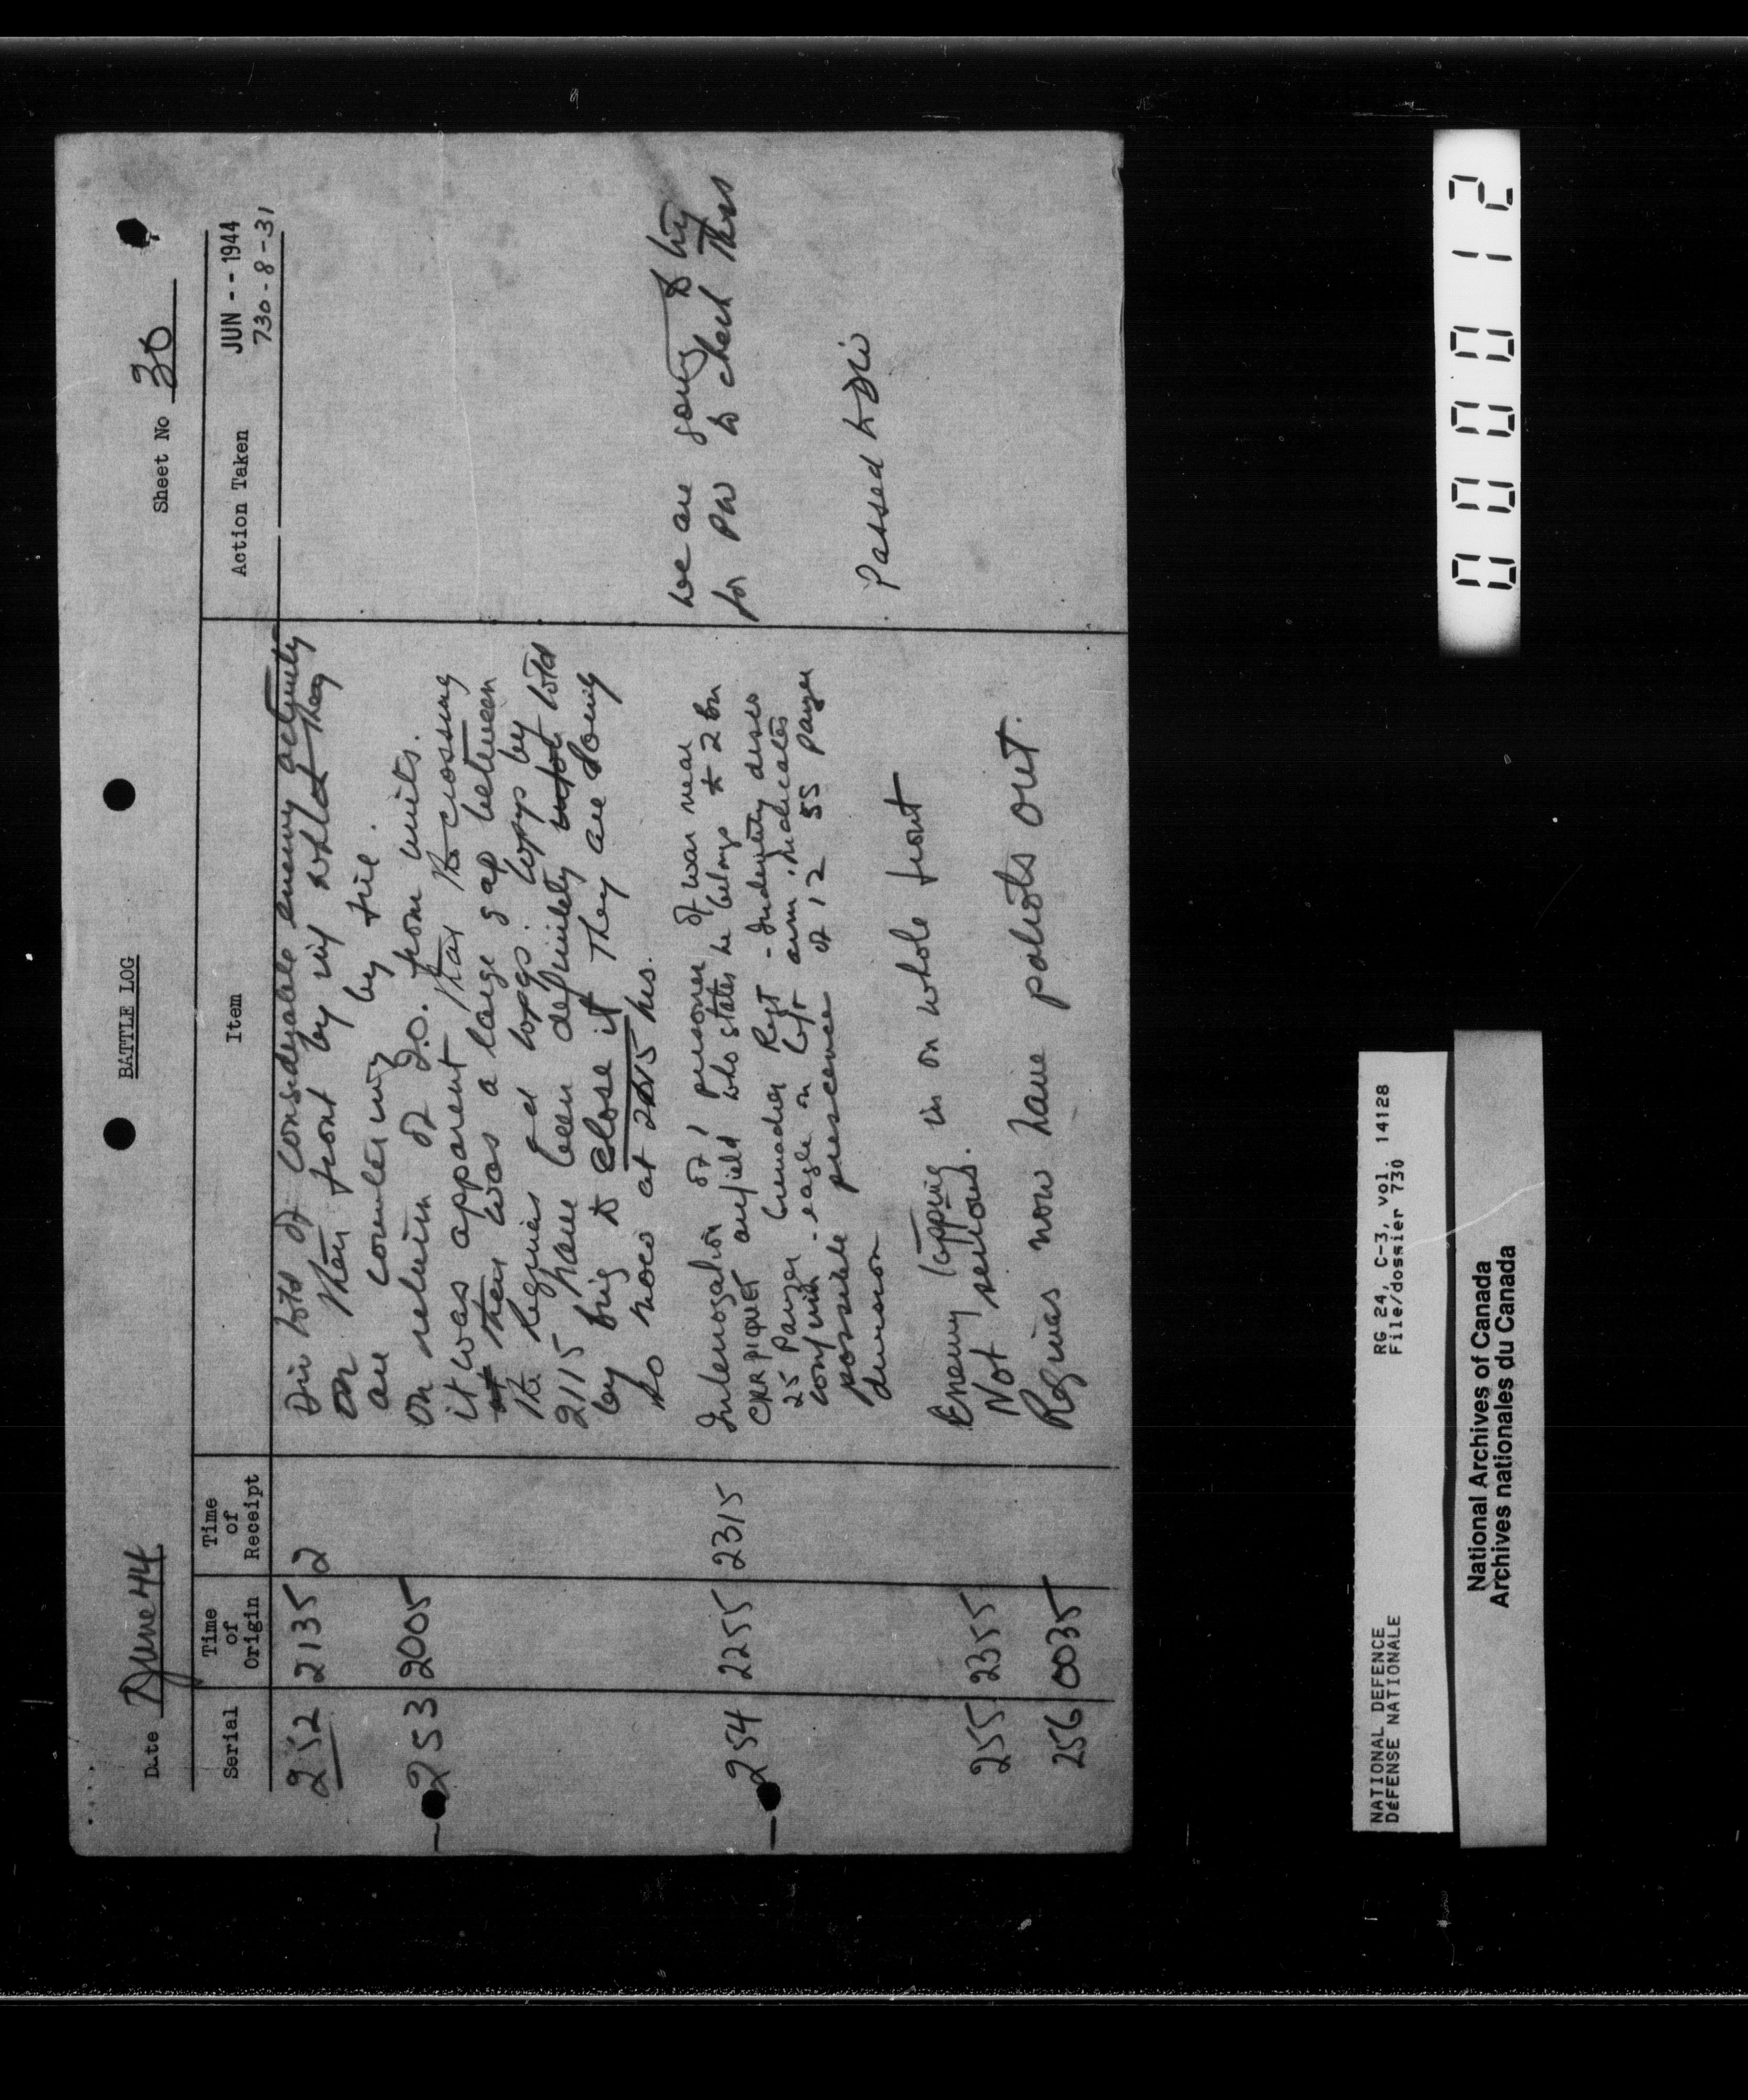 BATTLE LOG
Date June 44
Sheet No 30
Serial
Time of Origin
Time of Receipt
Item
Action Taken
JUN -- 1944
730-8-31
252 2135
Div told of considerable enemy activity
on their front by inf They
are countering by fire.
253 2005
On return of I.O. from units.
it was apparent that the crossing
there was a large gap between
the Reginas and
2115 have been definitely told
by brig to close it They are doing
so now at 2115 hrs.
254 2255 2315
Interrogation of 1 prisoner of war near
CARPIQUET airfield who states he belongs to 2 Bn
25 Panzer Grenadier Regt - Indentity discs
confirm - eagle on left arm indicates
possible prescence of 12 SS Panzer
division
we are going to try
for PW to check this
Passed to Div
255 2355
Enemy tapping in on whole front
Not serious.
256 0035
Reginas now have patrols out.
000012
NATIONAL DEFENCE
DÉFENSE NATIONALE
RG 24, C-3, vol. 14128
File/dossier 730
National Archives of Canada
Archives nationales du Canada